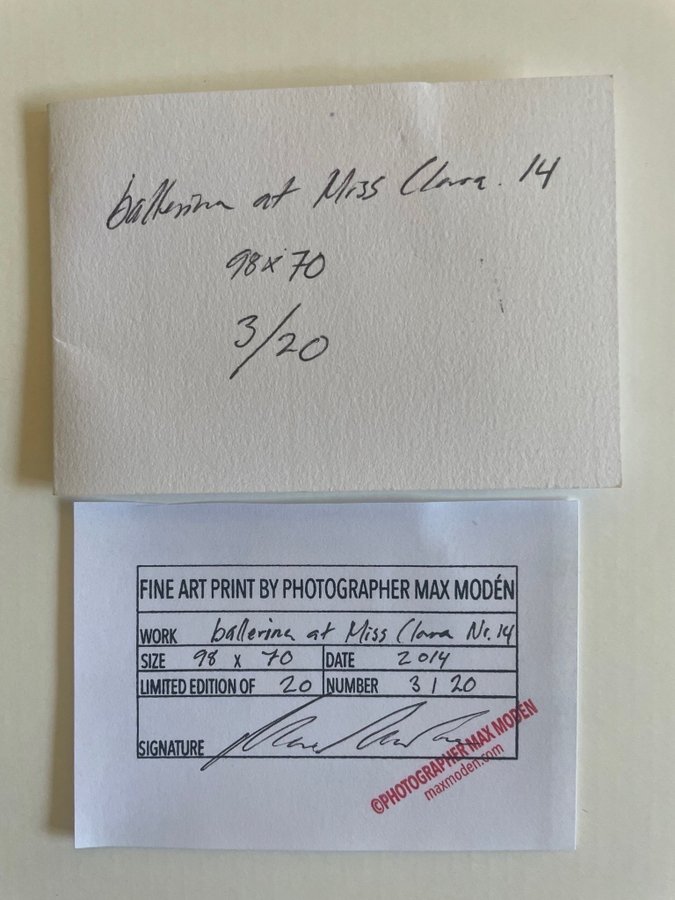 ballerina at Miss Clara. 14
98x70
3/20
FINE ART PRINT BY PHOTOGRAPHER MAX MODÉN
WORK ballerina at Miss Clara Nr. 14
SIZE 98 x 70 DATE 2014
LIMITED EDITION OF 20 NUMBER 3 | 20
SIGNATURE
©PHOTOGRAPHER MAX MODÉN
maxmoden.com